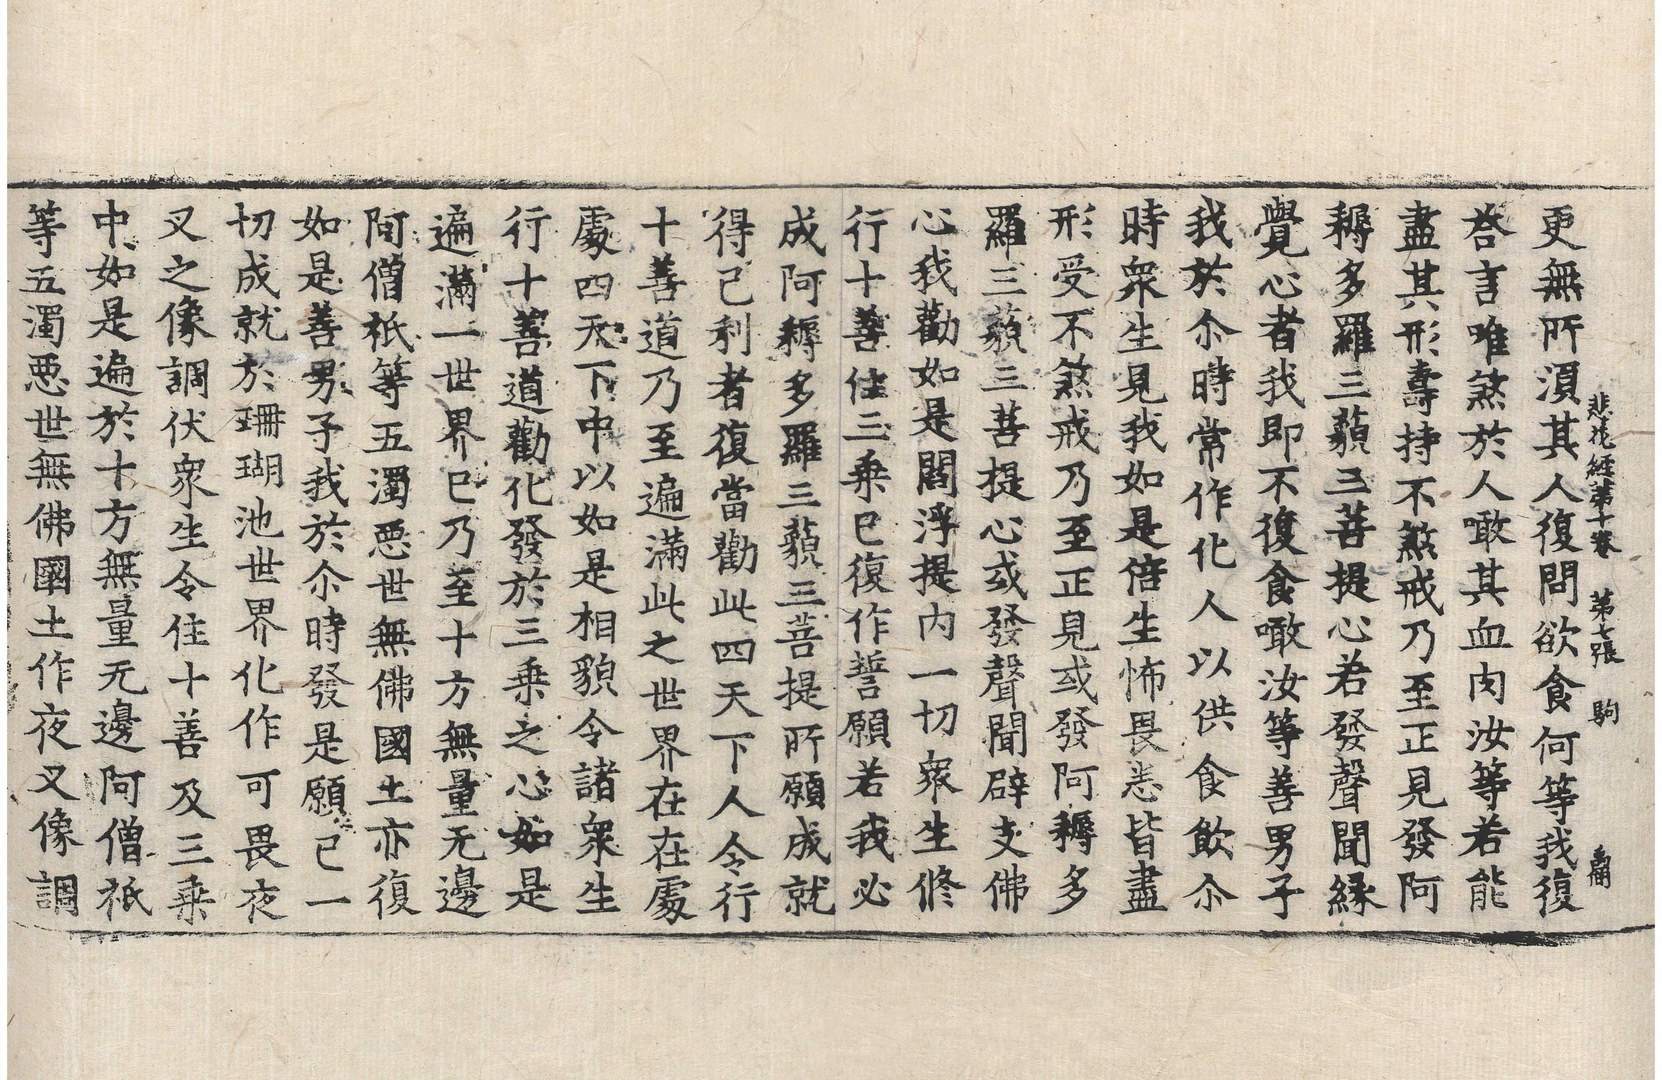 悲花經第十卷 第七張 駒
更無所須其人復問欲食何等我復
荅言唯煞於人噉其血肉汝等若能
盡其形壽持不煞戒乃至正見發阿
耨多羅三藐三菩提心若發聲聞緣
覺心者我即不復食噉汝等善男子
我於尒時常作化人以供食飲尒
時衆生見我如是倍生怖畏悉皆盡
形受不煞戒乃至正見或發阿耨多
羅三藐三菩提心或發聲聞辟支佛
心我勸如是閻浮提内一切衆生俻
行十善住三乘已復作誓願若我必
成阿耨多羅三藐三菩提所願成就
得己利者復當勸此四天下人令行
十善道乃至遍滿此之世界在在處
處四天下中以如是相貌令諸衆生
行十善道勸化發於三乘之心如是
遍滿一世界已乃至十方無量无邊
阿僧祇等五濁惡世無佛國土亦復
如是善男子我於尒時發是願已一
切成就於珊瑚池世界化作可畏夜
叉之像調伏衆生令住十善及三乘
中如是遍於十方無量无邊阿僧祇
等五濁惡世無佛國土作夜叉像調